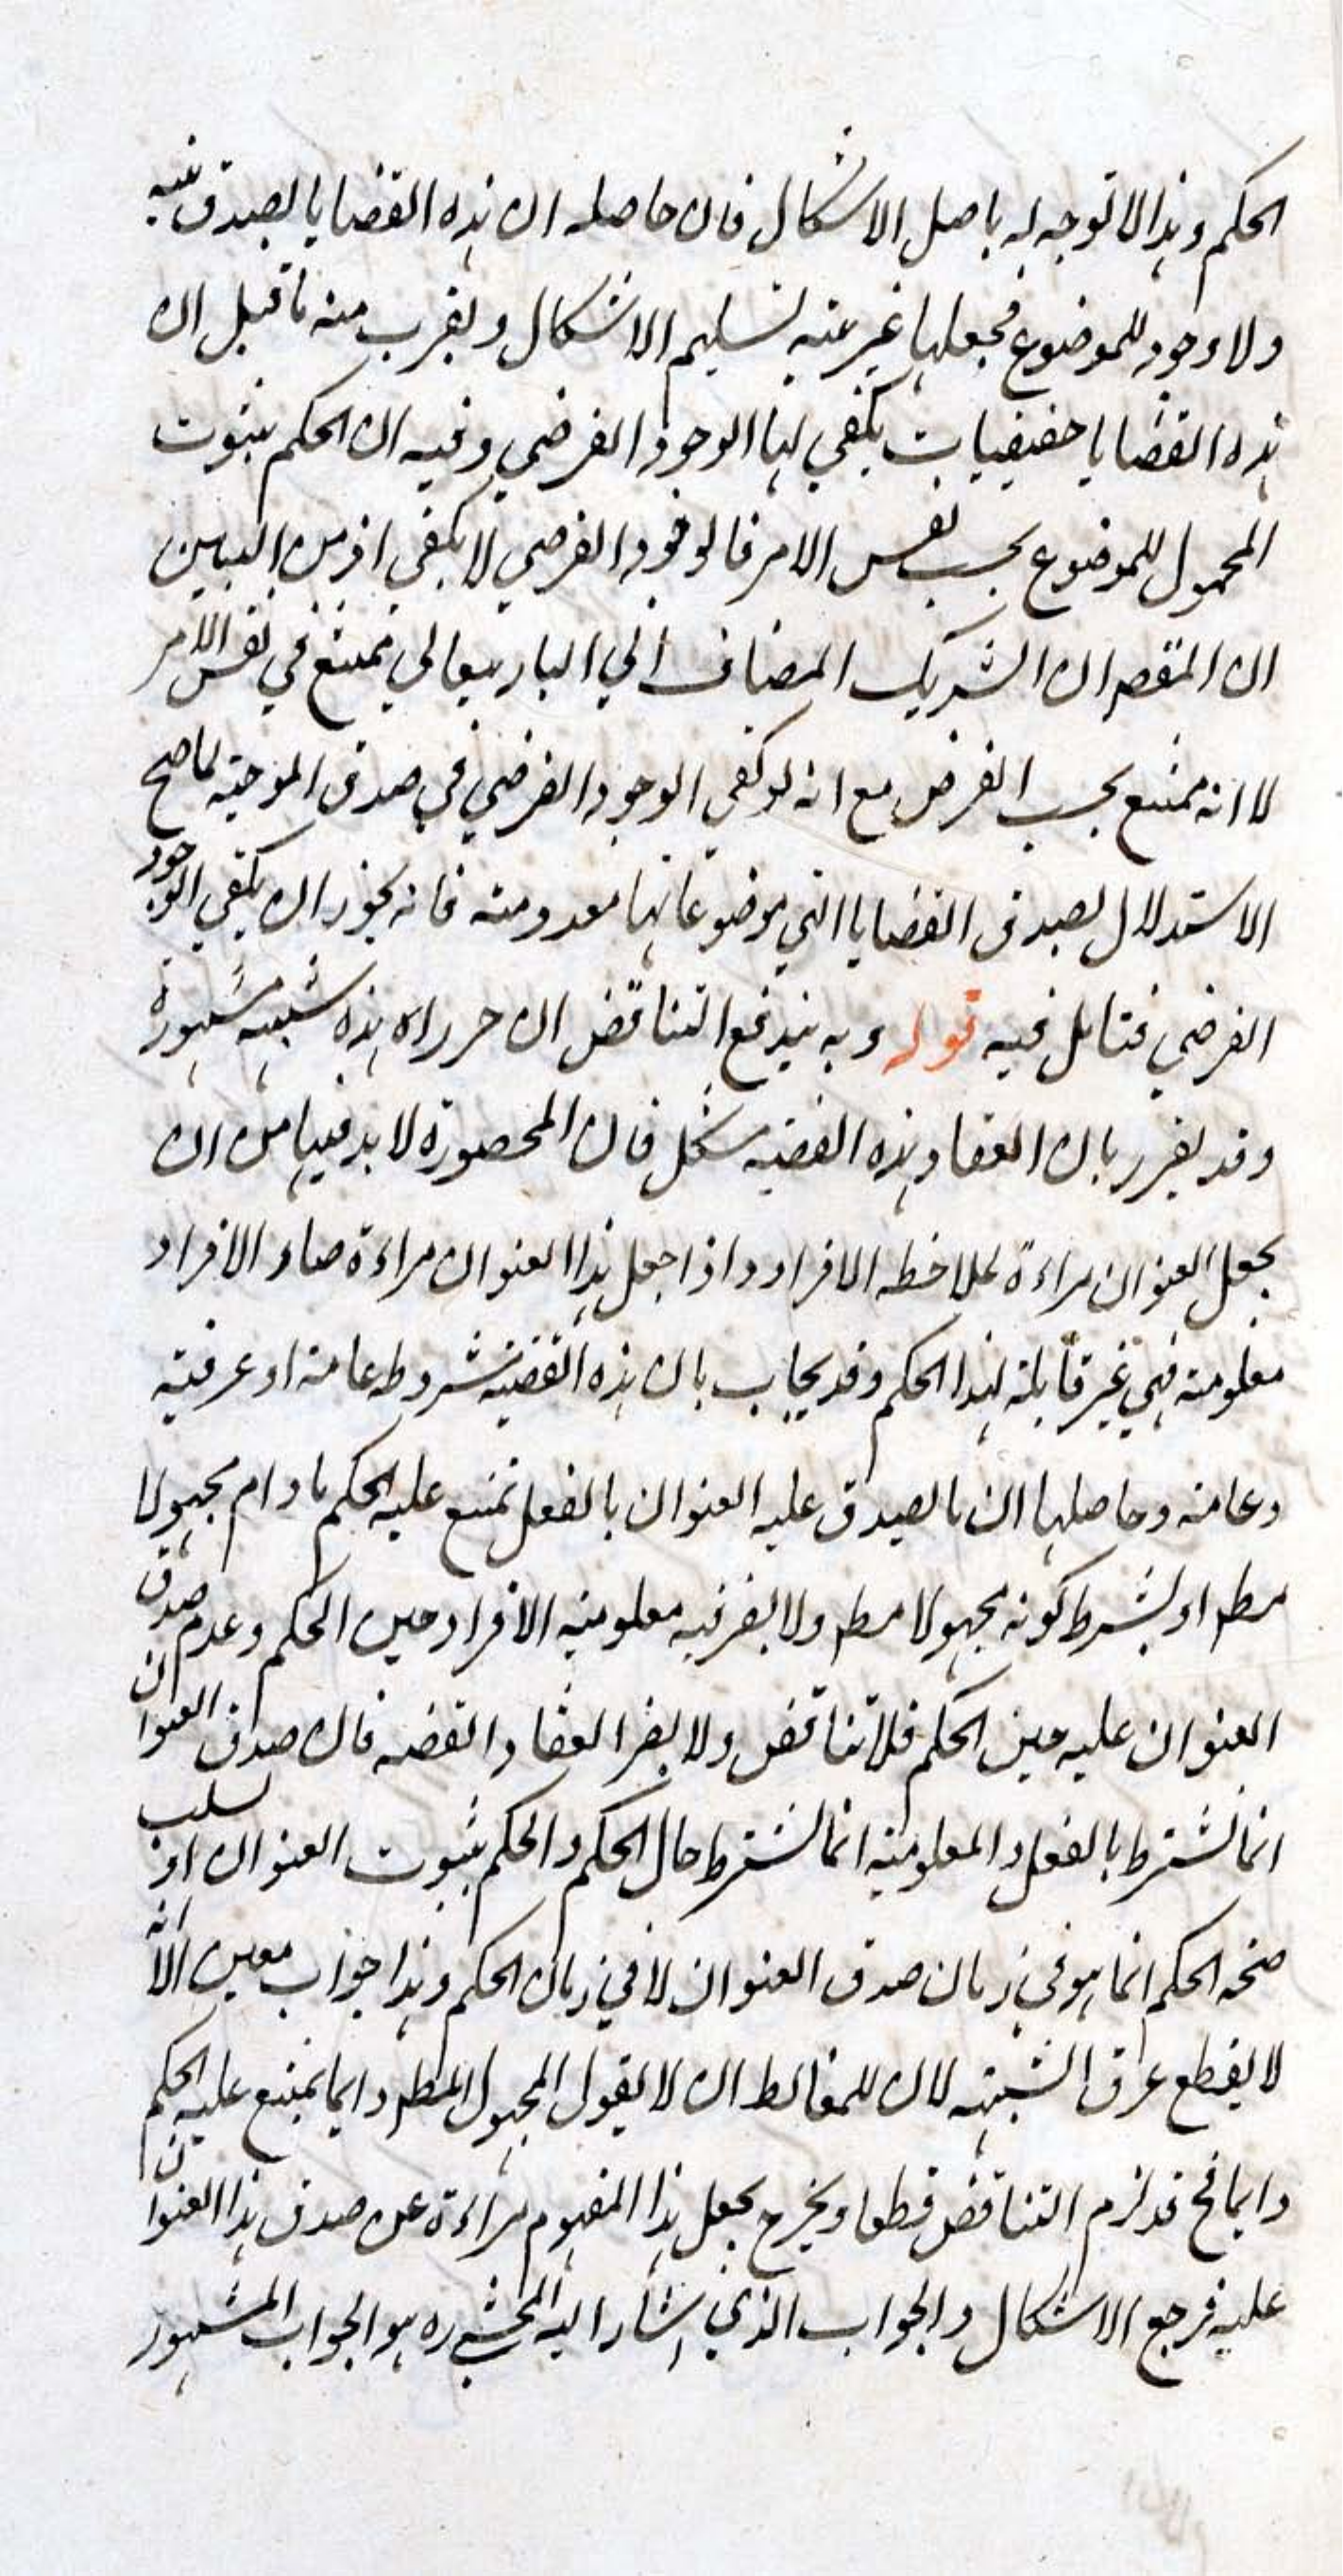 الحكم وهذا لا توجه له باصل الاشكال فان حاصله ان هذه القضايا يصدق بتيه
ولا وجود للموضوع فجعلها غير بتيه تسليم الاشكال ويقرب منه ما قيل ان
هذه القضايا حقيقيات يكفي لها الوجود الفرضي وفيه ان الحكم بثبوت
المحمول للموضوع بحسب نفس الامر فالوجود الفرضي لا يكفي اذ من البين
ان المقصد ان الشريك المضاف الي الباريتعالي ممتنع في نفس الامر
لا انه ممتنع بحسب الفرض مع انه لو كفي الوجود الفرضي في صدق الموجبة لما صح
الاستدلال بصدق القضايا التي موضوعاتها معدومة فانه يجوز ان يكفي الوجود
الفرضي فتامل فيه قوله وبه يندفع التناقض ان حرراه هذه شبهة مشهورة
وقد يقرر بان انعقاد هذه القضية مشكل فان المحصورة لا بد فيها من ان
يجعل العنوان مراءة لملاحظه الافراد واذا جعل هذا العنوان مراءة صار الافراد
معلومة فهي غير قابلة لهذا الحكم وقد يجاب بان هذه القضية مشروطه عامة او عرفية
وعامة وحاصلها ان ما يصدق عليه العنوان بالفعل يمتنع عليه الحكم ما دام مجهولا
مطر او بشرط كونه مجهولا مطر ولا يضر فيه معلومية الافراد حين الحكم وعدم صدق
العنوان عليه حين الحكم فلا تناقض ولا يضر انعقاد القضيه فان صدق العنوان
انما يشترط بالفعل والمعلومية انما يشترط حال الحكم والحكم بثبوت العنوان او سلب
صحه الحكم انما هو في زمان صدق العنوان لا في زمان الحكم وهذا جواب معين الا انه
لا يقطع عرق الشبهة لان للمغالط ان لا يقول المجهول المطر دايما يمتنع عليه الحكم
دايما فح قد لزم التناقض قطعا ويخرج بجعل هذا المفهوم مراءة عن صدق هذا العنوان
عليه فرجع الاشكال والجواب الذي اشار اليه المحشي ره هو الجواب المشهور